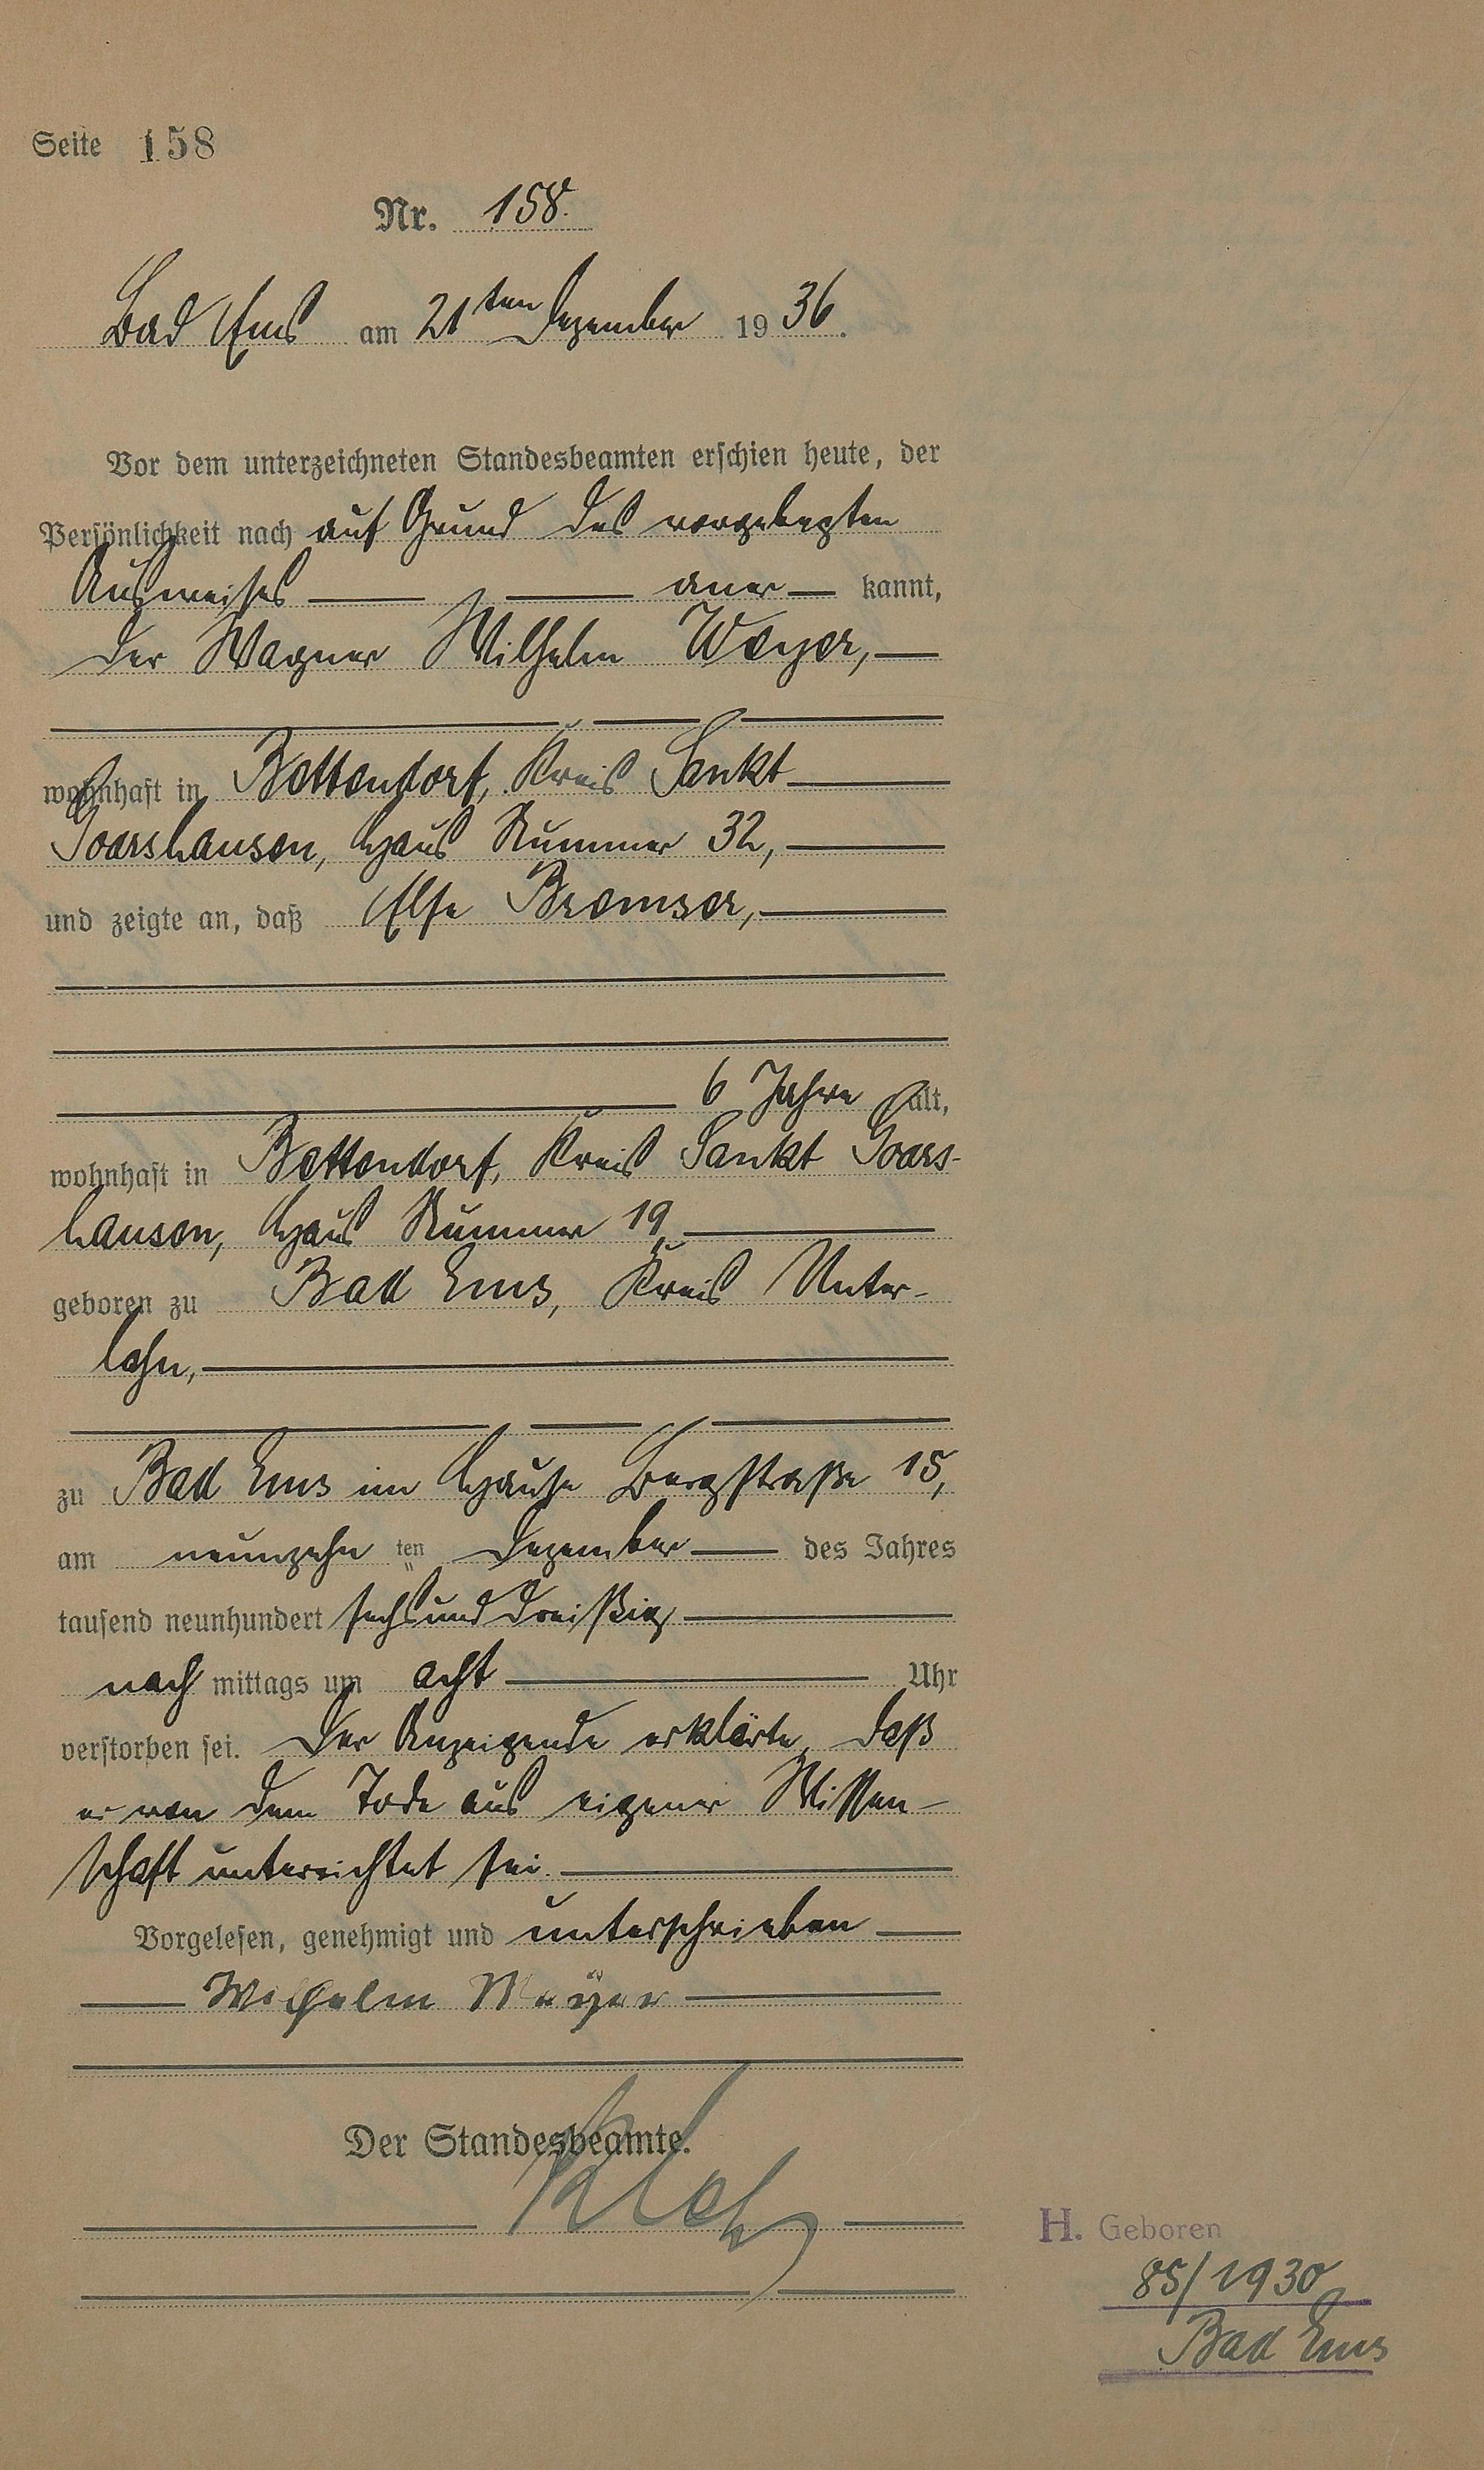 Seite 158
Nr. 158.
Bad Ems am 21ten Dezember 1936.
Vor dem unterzeichneten Standesbeamten erschien heute, der
Persönlichkeit nach auf Grund des vorgelegten
Ausweises aner kannt,
der Wagner Wilhelm Weyer,
wohnhaft in Bettendorf, Kreis Sankt
Goarshausen, Haus Nummer 32,
und zeigte an, daß Else Bremser,
6 Jahre alt,
wohnhaft in Bettendorf, Kreis Sankt Goars-
hausen, Haus Nummer 19,
geboren zu Bad Ems, Kreis Unter-
lahn,
zu Bad Ems im Hause Bergstraße 15,
am neunzehn ten Dezember des Jahres
tausend neunhundert sechsunddreißig
nach mittags um acht Uhr
verstorben sei. Der Anzeigende erklärte, daß
er von dem Tode aus eigener Wissen-
schaft unterrichtet sei.
Vorgelesen, genehmigt und unterschrieben
Wilhelm Weyer
Der Standesbeamte.
H. Geboren
85/1930
Bad Ems